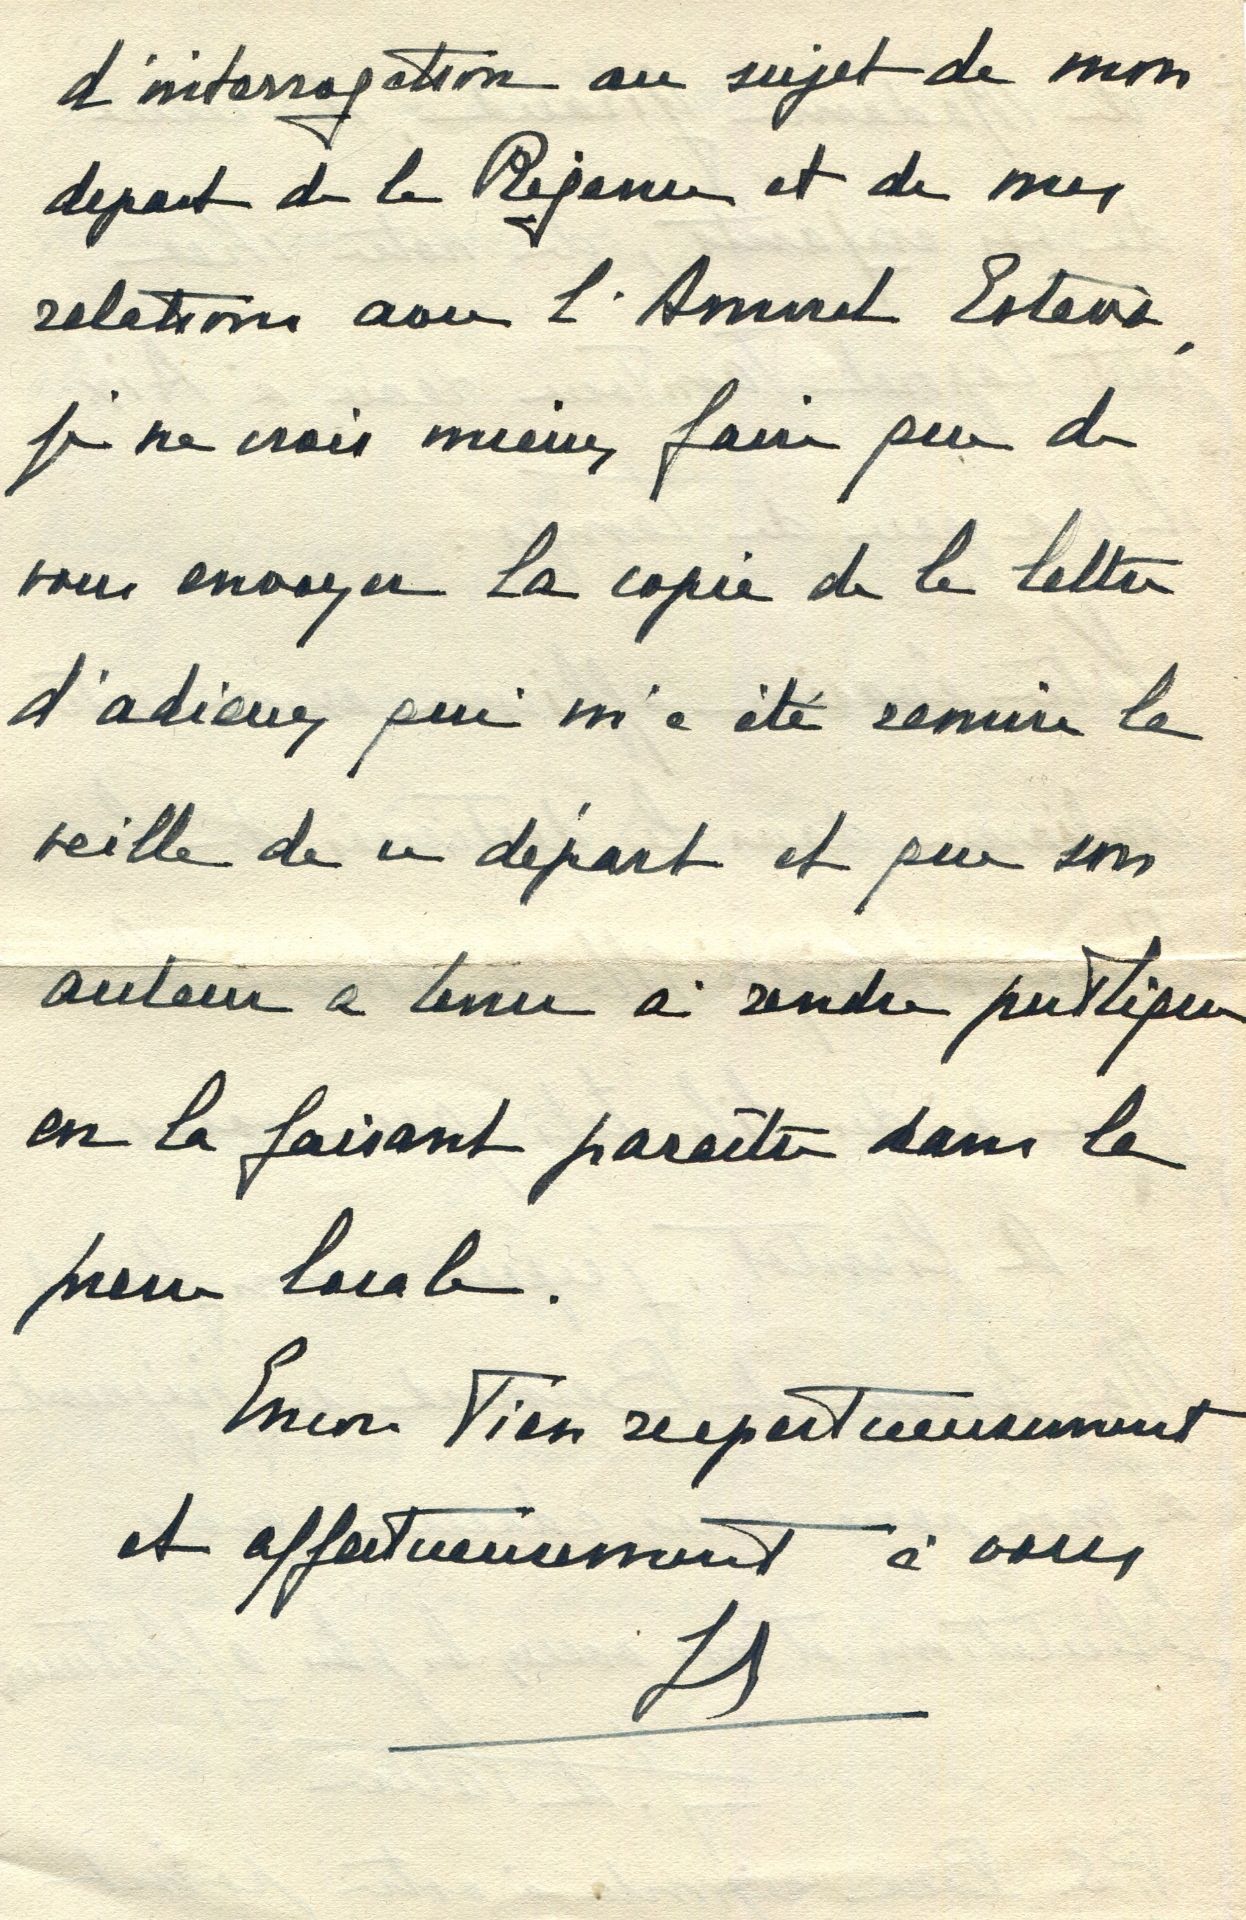 d'interrogation au sujet de mon
depart de la Régence et de mes
relations avec l'Amiral Esteva,
je ne crois mieux faire que de
vous envoyer la copie de la lettre
d'adieux qui m'a été remise la
veille de ce départ et que son
auteur a tenu à rendre publique
en la faisant paraître dans la
presse locale.
Encore bien respectueusement
et affectueusement à vous